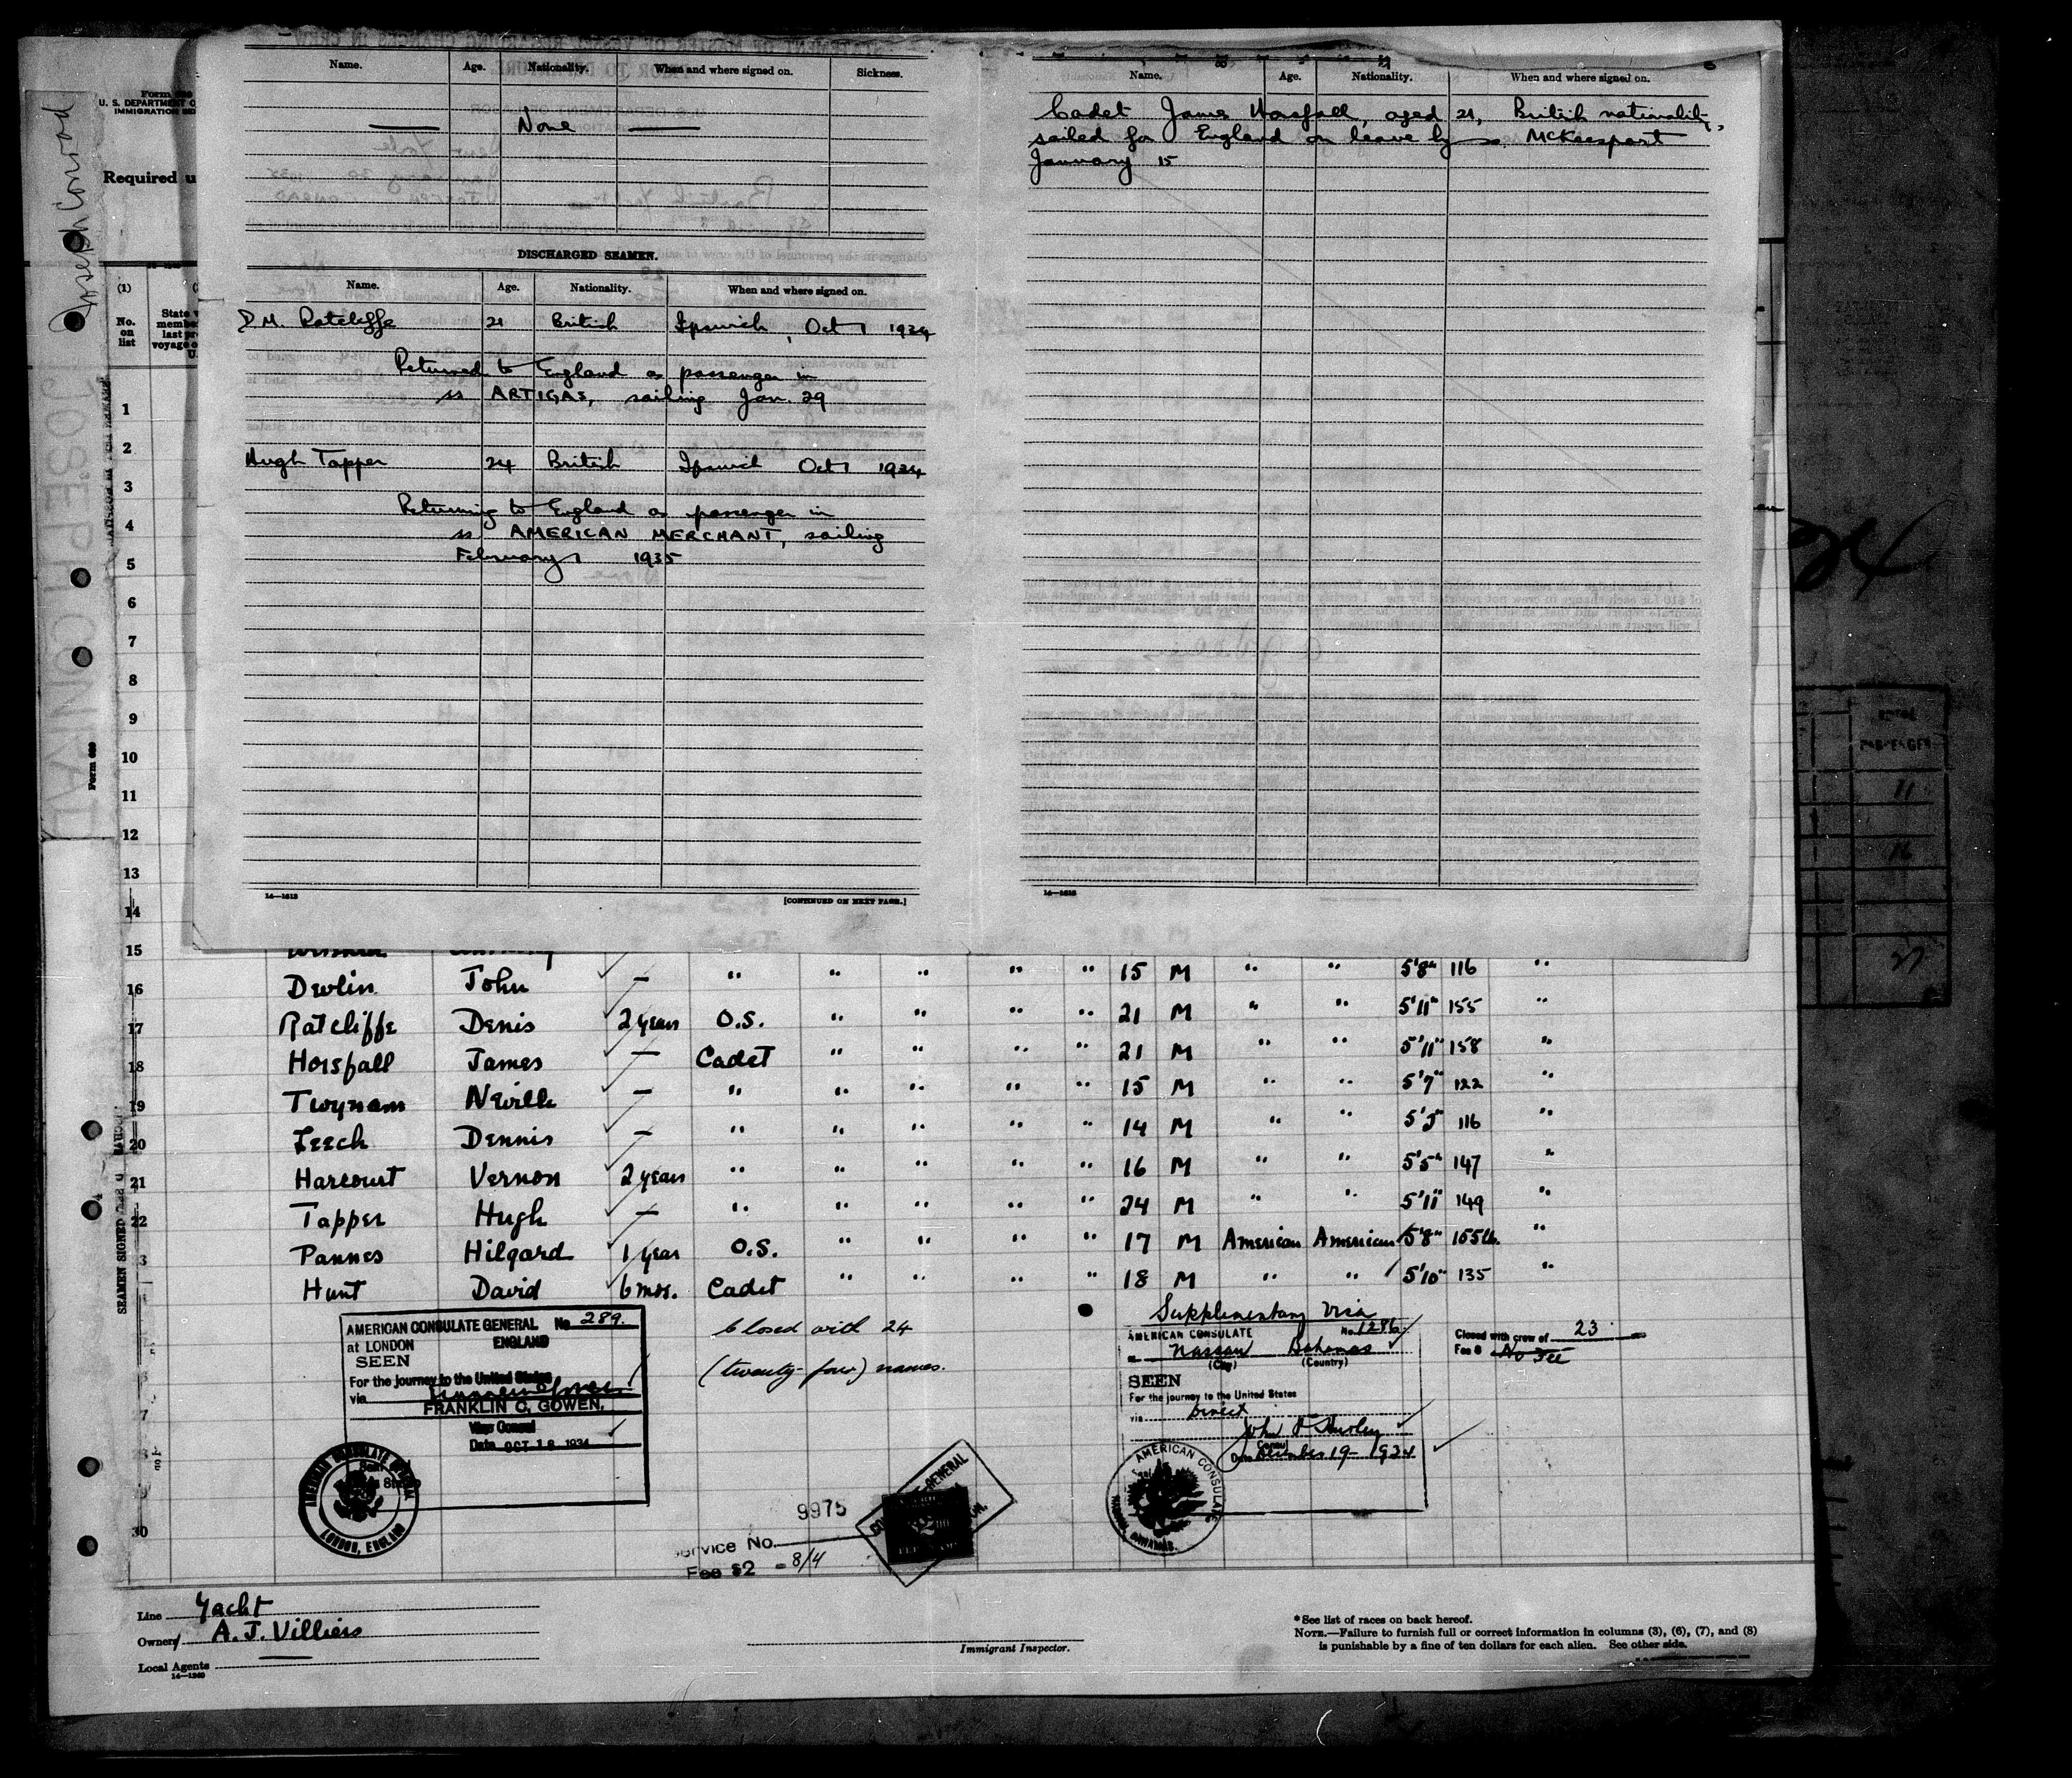 Name. Age. Nationality. When and where signed on. Sickness.
— None —
DISCHARGED SEAMEN.
Name. Age. Nationality. When and where signed on.
D.M. Ratcliffe 21 British Ipswich, Oct 1 1934
Returned to England as passenger in
ss ARTIGAS, sailing Jan. 29
Hugh Tapper 24 British Ipswich Oct 1 1934
Returning to England as passenger in
ss AMERICAN MERCHANT, sailing
February 1 1935
14—1613
[CONTINUED ON NEXT PAGE.]
Name. Age. Nationality. When and where signed on.
Cadet James Horsfall, aged 21, British nationality,
sailed for England on leave by ss. McKeesport
January 15
14—1613
Joseph Conrad
JOSEPH CONRAD
U. S. DEPARTMENT O
IMMIGRATION SE
Required u
(1)
No. on list
State
Form 680
1
2
3
4
5
6
7
8
9
10
11
12
13
14
15
16 Devlin John — " " " " " 15 M " " 5'8" 116 "
17 Ratcliffe Denis 2 years O.S. " " " " 21 M " " 5'11" 155 "
18 Horsfall James — Cadet " " " " 21 M " " 5'11" 158 "
19 Twynam Neville — " " " " " 15 M " " 5'7" 122 "
20 Leech Dennis — " " " " " 14 M " " 5'3" 116 "
21 Harcourt Vernon 2 years " " " " " 16 M " " 5'5" 147 "
22 Tapper Hugh — " " " " " 24 M " " 5'11" 149 "
3 Pannes Hilgard 1 year O.S. " " " " 17 M American American 5'8" 155lb. "
Hunt David 6 mos. Cadet " " " " 18 M " " 5'10" 135 "
30
SEAMEN SIGNED
AMERICAN CONSULATE GENERAL No 289.
at LONDON ENGLAND
SEEN
For the journey to the United States
via
FRANKLIN C. GOWEN,
Vice Consul
Date OCT 18 1934
AMERICAN CONSULATE GENERAL
LONDON, ENGLAND
Closed with 24
(twenty-four) names.
9975
Service No.
Fee $2 = 8/4
Supplementary Visa
AMERICAN CONSULATE No. 1286
Nassau Bahamas
(City) (Country)
SEEN
For the journey to the United States
via Direct
John F. Hurley
Consul
Date December 19- 1934
AMERICAN CONSULATE
NASSAU, BAHAMAS.
Closed with crew of 23
Fee $ No Fee
24
11
16
27
Line Yacht
Owner A. J. Villiers
Local Agents —
14—1240
Immigrant Inspector.
*See list of races on back hereof.
NOTE.—Failure to furnish full or correct information in columns (3), (6), (7), and (8)
is punishable by a fine of ten dollars for each alien. See other side.